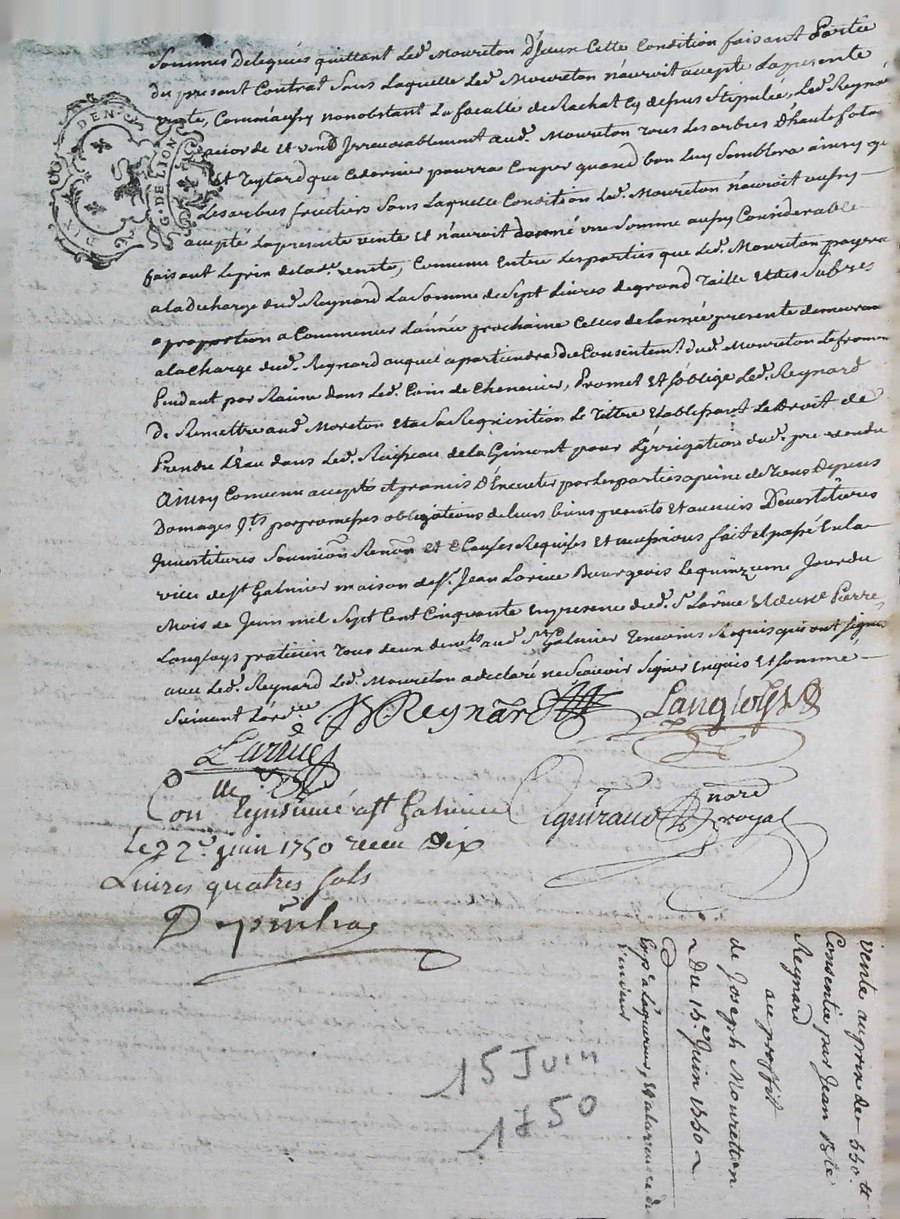 Sommes deleguées quittant Led. Moureton d'Jceux Cette Condition faisant Partie
du present Contrat Sans Laquelle Led. Moureton n'auroit accepté La presente
vente, Comm'aussy nonobstant La faculté de Rachat Cy depus Stipulée, Led. Reynard
acorde et vend Jrrevocablement aud. Moureton tous Les arbres d'haute futaye
et Teytard que Ce dernier pourra Couper quand bon Luy Semblera ainsy que
Les arbres fruitiers Sans Laquelle Condition Led. Moureton n'auroit aussy
accepté La presente vente et n'auroit donné une Somme aussy Considerable
faisant Le prix de lad. vente, Convenu Entre Les parties que Led. Moureton payera
a la decharge dud. Reynard La Somme de Sept Livres de grand Taille et des Subres
a proportion a Commencer L'année prochaine Celles de L'année presente demeurant
a la Charge dud. Reynard auquel apartiendra du Consentemt. dud. Moureton Le froment
Pendant par Racine dans Led. Coin de Chenevier, Promet et S'oblige Led. Reynard
De Remettre aud. Moreton et a Sa Requisition Le Tittre Etablissant Le droit de
Prendre L'Eau dans Led. Ruisseau de la Gimont pour L'Jrrigation du d. pré vendu
Ainsy Convenu accepté et promis D'Executer par Les parties a peine de Tous Depens
Domages Jts. par promesses obligations de leurs biens presents et avenirs Devestitures
Jnvestitures Soumions Renons et Clauses Requises fait et passé En la
ville de St. Galmier maison de Sr. Jean Larüe Bourgeois Le quinzieme Jour du
Mois de Juin mil Sept Cent Cinquante En presence dud. Sr. Larüe Et de Me Pierre
Langloys praticien Tous deux demts. aud. St. Galmier Temoins Requis qui ont signé
avec Led. Reynard Led. Moureton a declaré ne Scavoir Signer Enquis Et Sommé
Suivant L'ordce.
JB Reynard
Langloys
Larüe
Conlle et insinué a St Galmier
le 22e. juin 1750 receu Dix
Livres quatres sols
Depinhac
Giquiraud nore royal
vente au prix de 550 tt
Consentie par Jean Bte
Reynard
au proffit
de Joseph Mouretton
Du 15e. Juin 1750
15 Juin
1750
G. DE LION
DEN
DIX